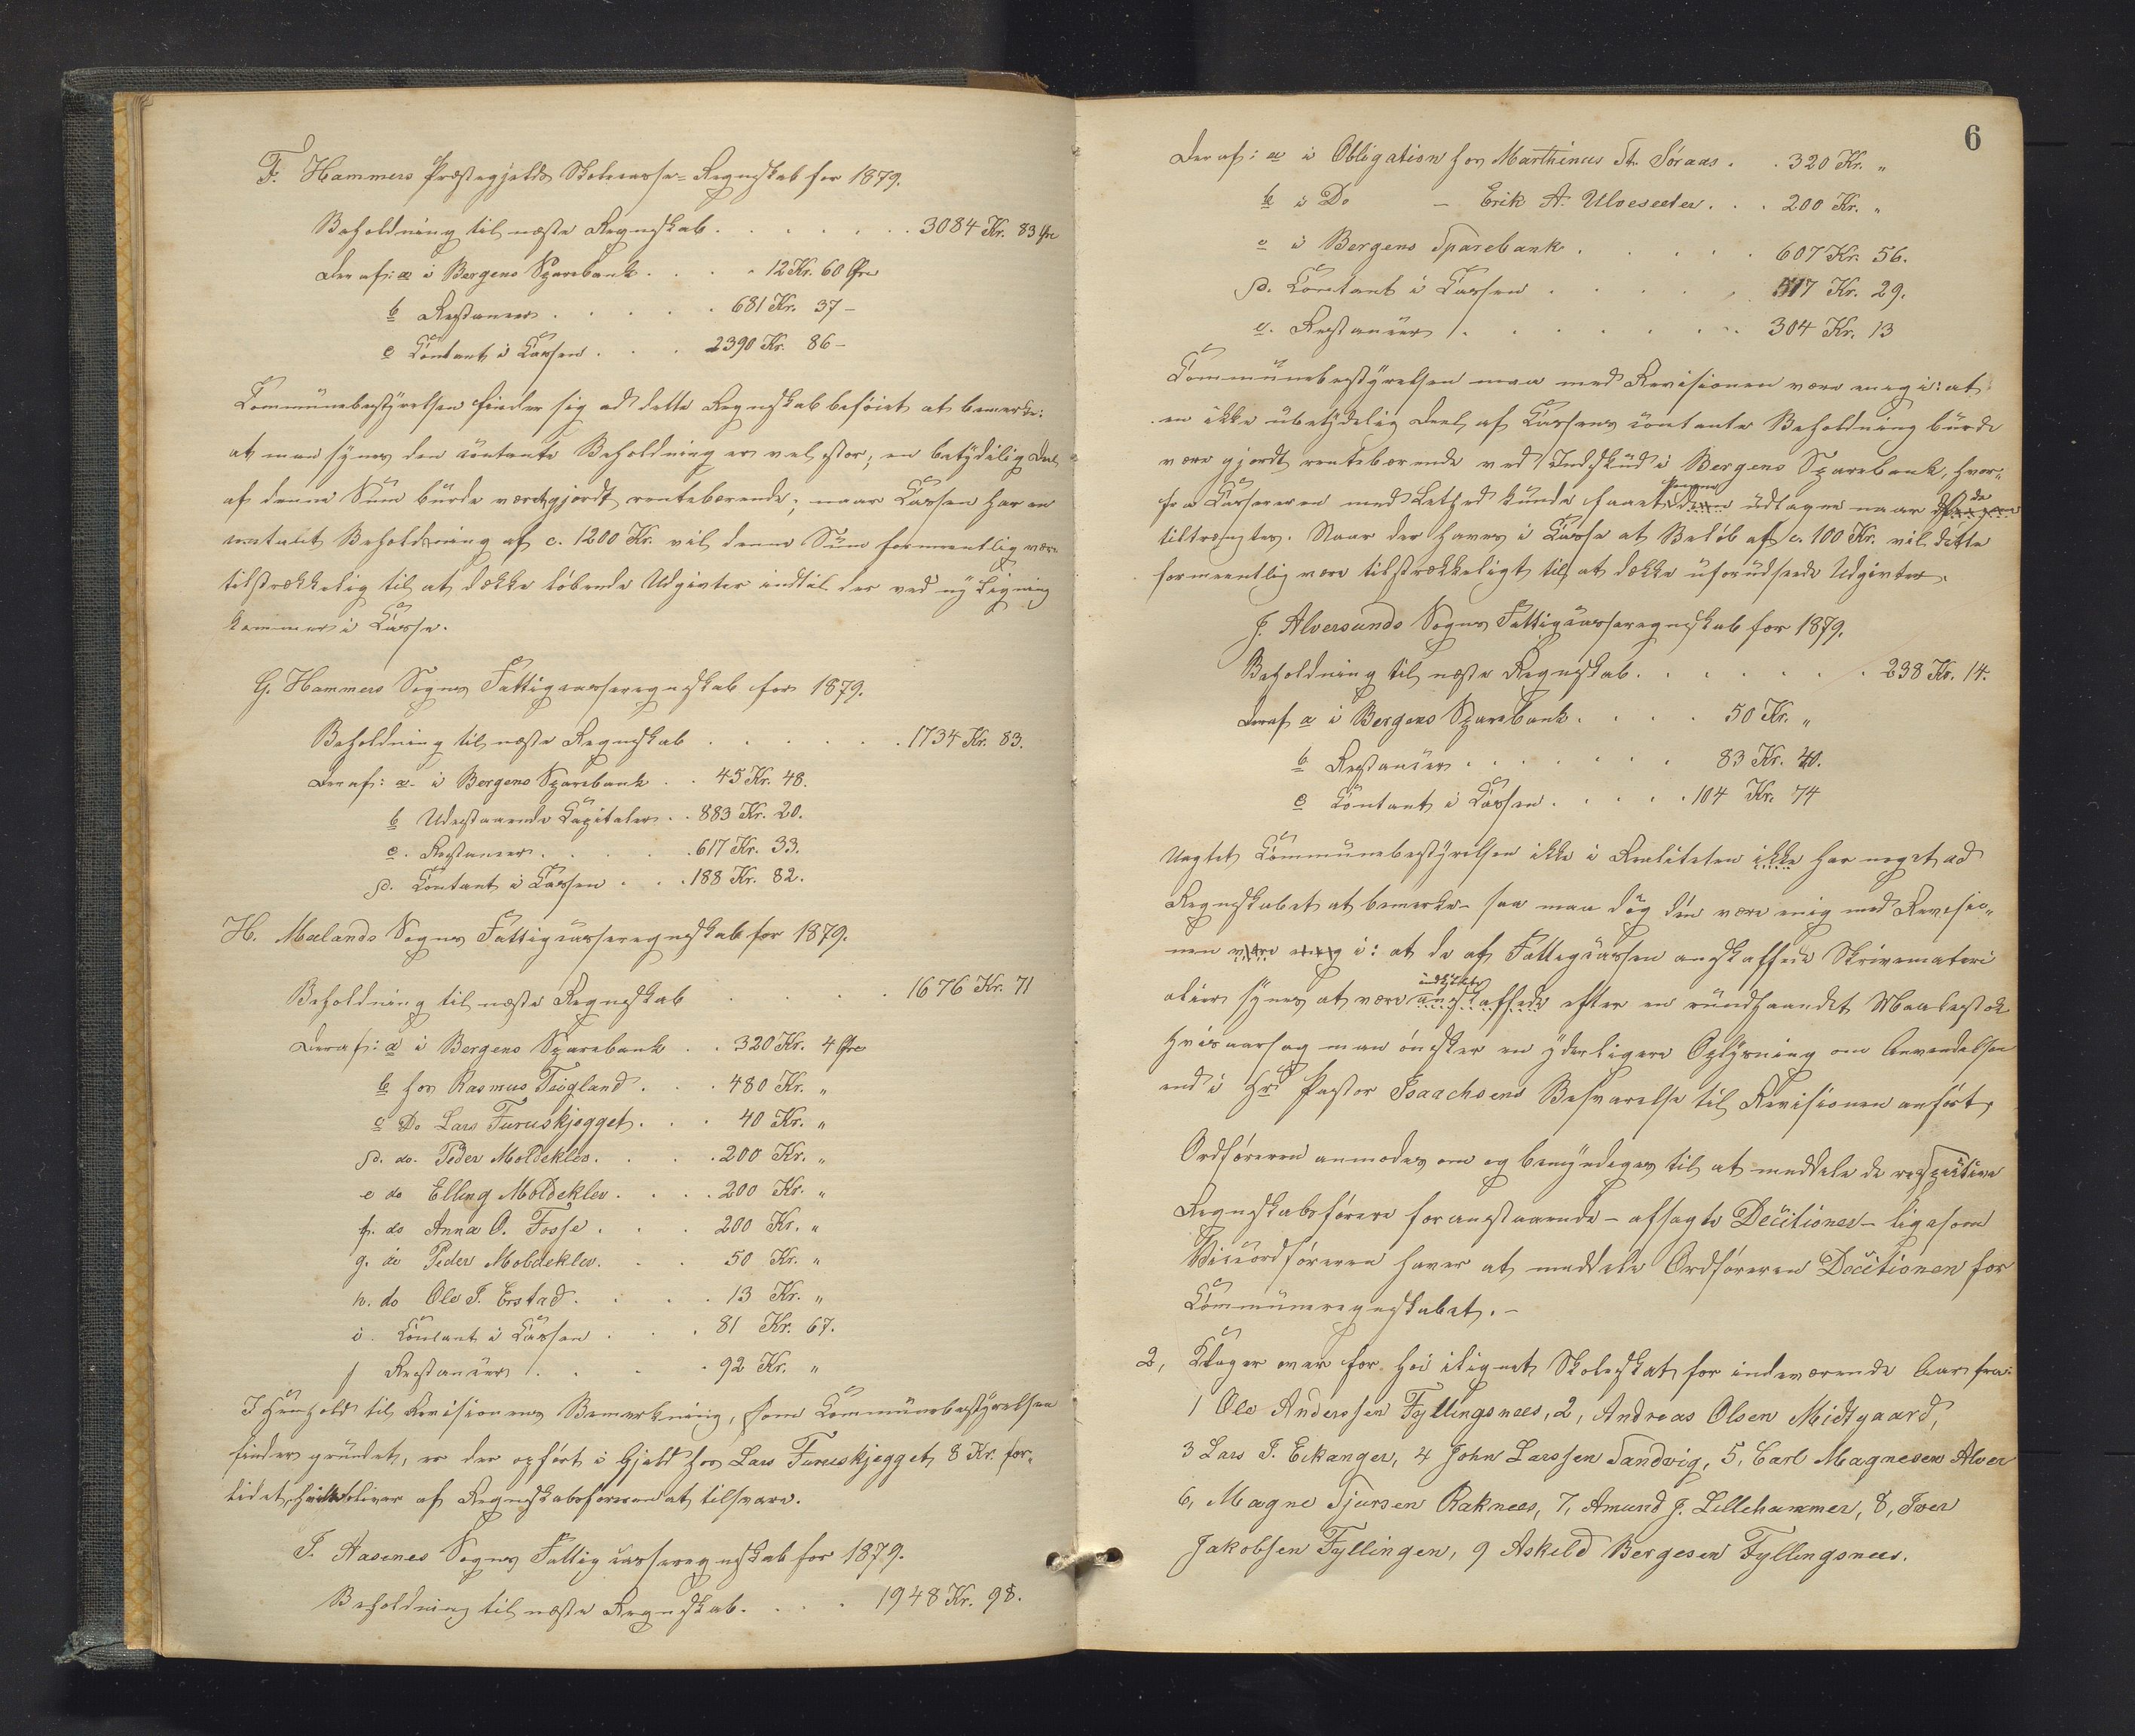 F. Hammers Præstegjelds Skolecasse-Regnskab for 1879.
Beholdning til næste Regnskab . . . . . . 3084 Kr. 83 Øre
Deraf: a i Bergens Sparebank . . . . 12 Kr. 60 Øre
b Restancer . . . . . 681 Kr. 37 -
c Contant i Cassen . . . 2390 Kr. 86 -
Communebestyrelsen finder sig ad dette Regnskab beføiet at bemerke:
at man synes den contante Beholdning er vel stor; en betydelig Del
af denne Sum burde været gjordt rentebærende; naar Cassen har en
contant Beholdning af c. 1200 Kr. vil denne Sum formeentlig være
tilstrækkelig til at dække løbende Udgivter indtil der ved ny Ligning
kommer i Casse.
G. Hammers Sogns Fattigcasseregnskab for 1879.
Beholdning til næste Regnskab . . . . . . 1734 Kr. 83.
Deraf: a. i Bergens Sparebank . . 45 Kr. 48.
b Udestaaende Capitaler . . 883 Kr. 20.
c. Restancer . . . . . 617 Kr. 33.
d. Contant i Cassen . . . 188 Kr. 82.
H. Mælands Sogns Fattigcasseregnskab for 1879.
Beholdning til næste Regnskab . . . . . 1676 Kr. 71
Deraf: a i Bergens Sparebank . . 320 Kr. 4 Øre
b hos Rasmus Teigland . . . 480 Kr. "
c Do Lars Furuskjegget . . . 40 Kr. "
d. do. Peder Moldeklev . . . . 200 Kr. "
e do Elling Moldeklev . . . . 200 Kr. "
f. do Anna O. Fosse . . . 200 Kr. "
g. do Peder Moldeklev. . . 50 Kr. "
h. do Ole J. Erstad . . . . 13 Kr. "
i. Contant i Cassen . . . 81 Kr. 67.
j Restancer . . . . 92 Kr. "
I Henhold til Revisionens Bemerkning, som Communebestyrelsen
finder grundet, er der opført i Gjeld hos Lars Furuskjegget 8 Kr. for-
lidet, hvilke bliver af Regnskabsføreren at tilsvare.
I. Aasenes Sogns Fattigcasseregnskab for 1879.
Beholdning til næste Regnskab . . . . 1948 Kr. 98.
6
Deraf: a i Obligation hos Marthinus St. Søraas . . 320 Kr. "
b i Do - Erik A. Ulvesæter . . . 200 Kr. "
c i Bergens Sparebank . . . . . 607 Kr. 56.
d. Contant i Cassen . . . . . 517 Kr. 29.
e. Restancer . . . . . . . 304 Kr. 13
Communebestyrelsen maa med Revisionen være enig i: at
en ikke ubetydelig Deel af Cassens contante Beholdning burde
være gjordt rentebærende ved Indskud i Bergens Sparebank, hvor-
fra Cassereren med Lethed kunde faaet Pengene udtagne naar de
tiltrængtes. Naar der haves i Casse et Beløb af c. 100 Kr. vil dette
formeentlig være tilstrækkeligt til at dække uforudseede Udgivter.
J. Alversunds Sogns Fattigcasseregnskab for 1879.
Beholdning til næste Regnskab . . . . . . 238 Kr. 14.
Deraf a i Bergens Sparebank . . . . 50 Kr. "
b Restancer . . . . . . . 83 Kr. 40.
c Contant i Cassen . . . . . 104 Kr. 74
Uagtet Communebestyrelsen ikke i Realiteten ikke har noget ad
Regnskabet at bemerke - saa maa dog den være enig med Revisio-
nen være enig i: at de af Fattigcassen anskaffede Skrivemateri
alier synes at være indkjøbte anskaffede efter en rundhaandet Maalestok
hvisaarsag man ønsker en yderligere Oplysning om Anvendelsen
end i Hr. Pastor Isaachsens Besvarelse til Revisionen anført.
Ordføreren anmodes om og bemyndiges til at meddele de respective
Regnskabsførere foranstaaende - afsagte Decitioner - ligesom
Viceordføreren haver at meddele Ordføreren Decitionen for
Communeregnskabet. -
2, Klager over for høi ilignet Skoleskat for indeværende Aar fra:
1 Ole Anderssen Fyllingsnæs, 2, Andreas Olsen Midtgaard,
3 Lars J. Eikanger, 4 John Larssen Sandvig, 5, Carl Magnesen Alver
6, Magne Sjursen Raknæs, 7, Amund J. Lillehammer, 8, Iver
Jakobsen Fyllingen, 9 Askild Bergesen Fyllingsnæs.